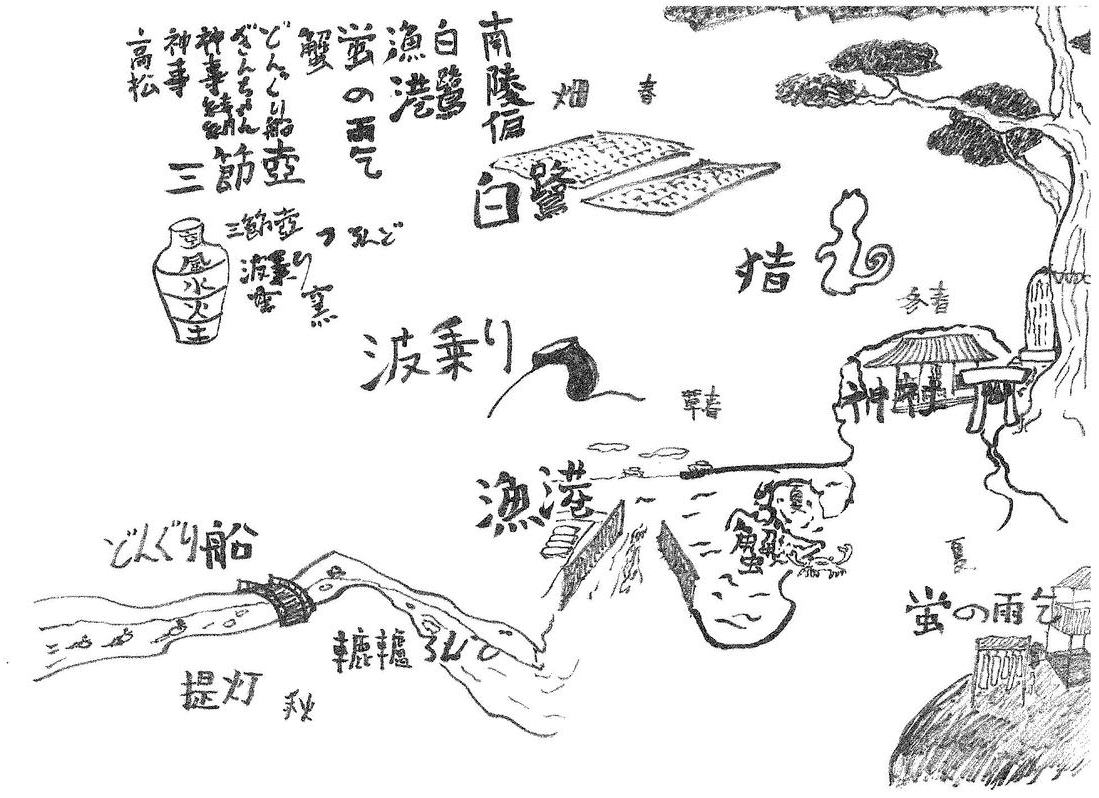 南陵
白鷺
漁港
蛍の雨乞
蟹
どんぐり船
ぎんちゃん
神事
神事
高松
三節壺
畑
春
白鷺
三節壺
波乗り
窯
ろんど
風
水
火
土
波乗り
神社
漁港
夏
蟹
どんぐり船
夏
蛍の雨乞
轆轤ろんど
提灯
秋